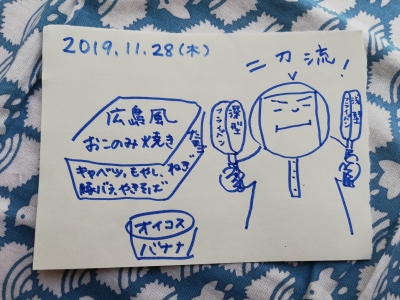 2019.11.28(木)
二刀流!
広島風
おこのみ焼き
たまご
キャベツ、もやし、ねぎ
豚バラ、やきそば
オイコス
バナナ
深型
フライパン
浅型
フライパン